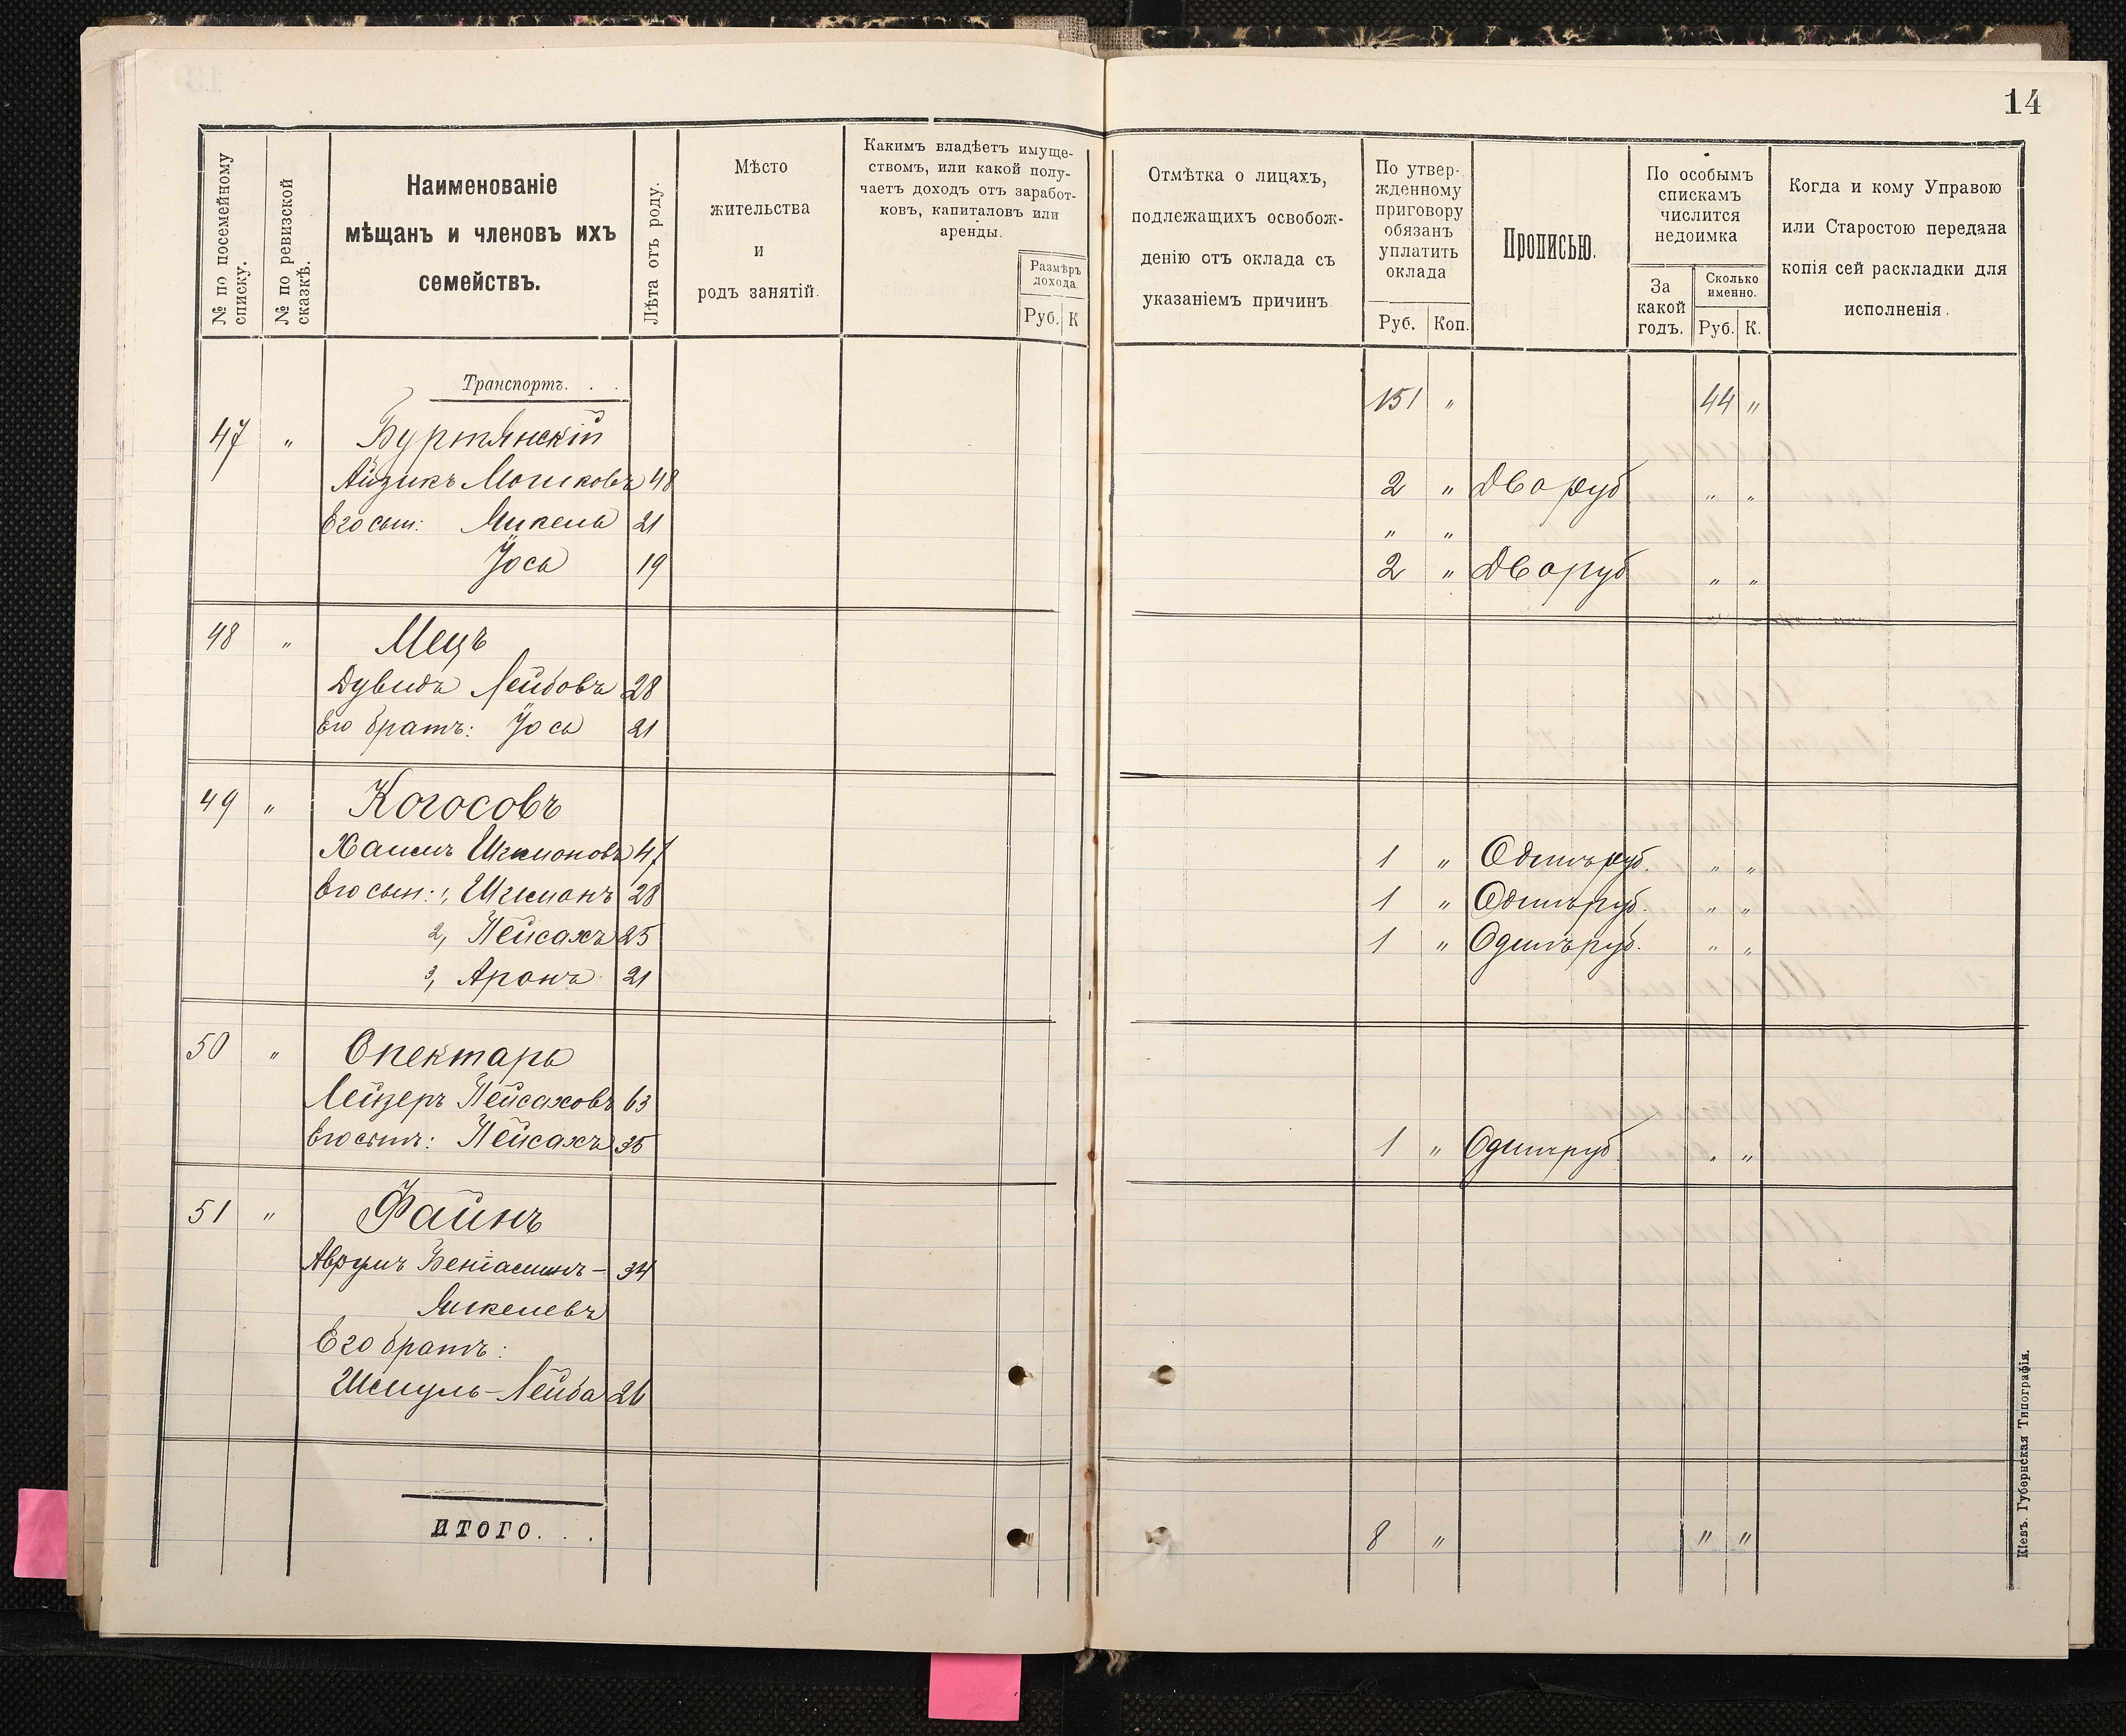 14
№ по посемейному списку.
№ по ревизской сказкѣ.
Наименованіе
мѣщанъ и членовъ ихъ
семействъ.
Лѣта отъ роду.
Мѣсто
жительства
и
родъ занятій.
Какимъ владѣетъ имуще-
ствомъ, или какой полу-
чаетъ доходъ отъ заработ-
ковъ, капиталовъ или
аренды.
Размѣръ
дохода.
Руб. К
Отмѣтка о лицахъ,
подлежащихъ освобож-
денію отъ оклада съ
указаніемъ причинъ
По утвер-
жденному
приговору
обязанъ
уплатить
оклада
Руб. Коп.
Прописью.
По особымъ
спискамъ
числится
недоимка
За
какой
годъ.
Сколько
именно.
Руб. К.
Когда и кому Управою
или Старостою передана
копія сей раскладки для
исполненія.
Транспортъ. . .
151 „ 44 „
47 „ Буртянскій
Айзикъ Мошковъ 48 2 „ Два руб „ „
Его сын: Янкель 21 „ „
Іось 19 2 „ Два руб „ „
48 „ Мецъ
Дувидъ Лейбовъ 28
Его братъ: Іось 21
49 „ Когосовъ
Хаимъ Шимоновъ 47 1 „ Одинъ руб. „ „
Его сын: 1, Шимонъ 28 1 „ Одинъ руб. „ „
2, Пейсахъ 25 1 „ Одинъ руб. „ „
3, Аронъ 21
50 „ Спектаръ
Лейзеръ Пейсаховъ 63
Его сынъ: Пейсахъ 35 1 „ Одинъ руб „ „
51 „ Файнъ
Аврумъ Беніаминъ- 34
Янкелевъ
Его братъ:
Шмуль-Лейба 26
ИТОГО. . .
8 „ „ „
Кіевъ. Губернская Типографія.